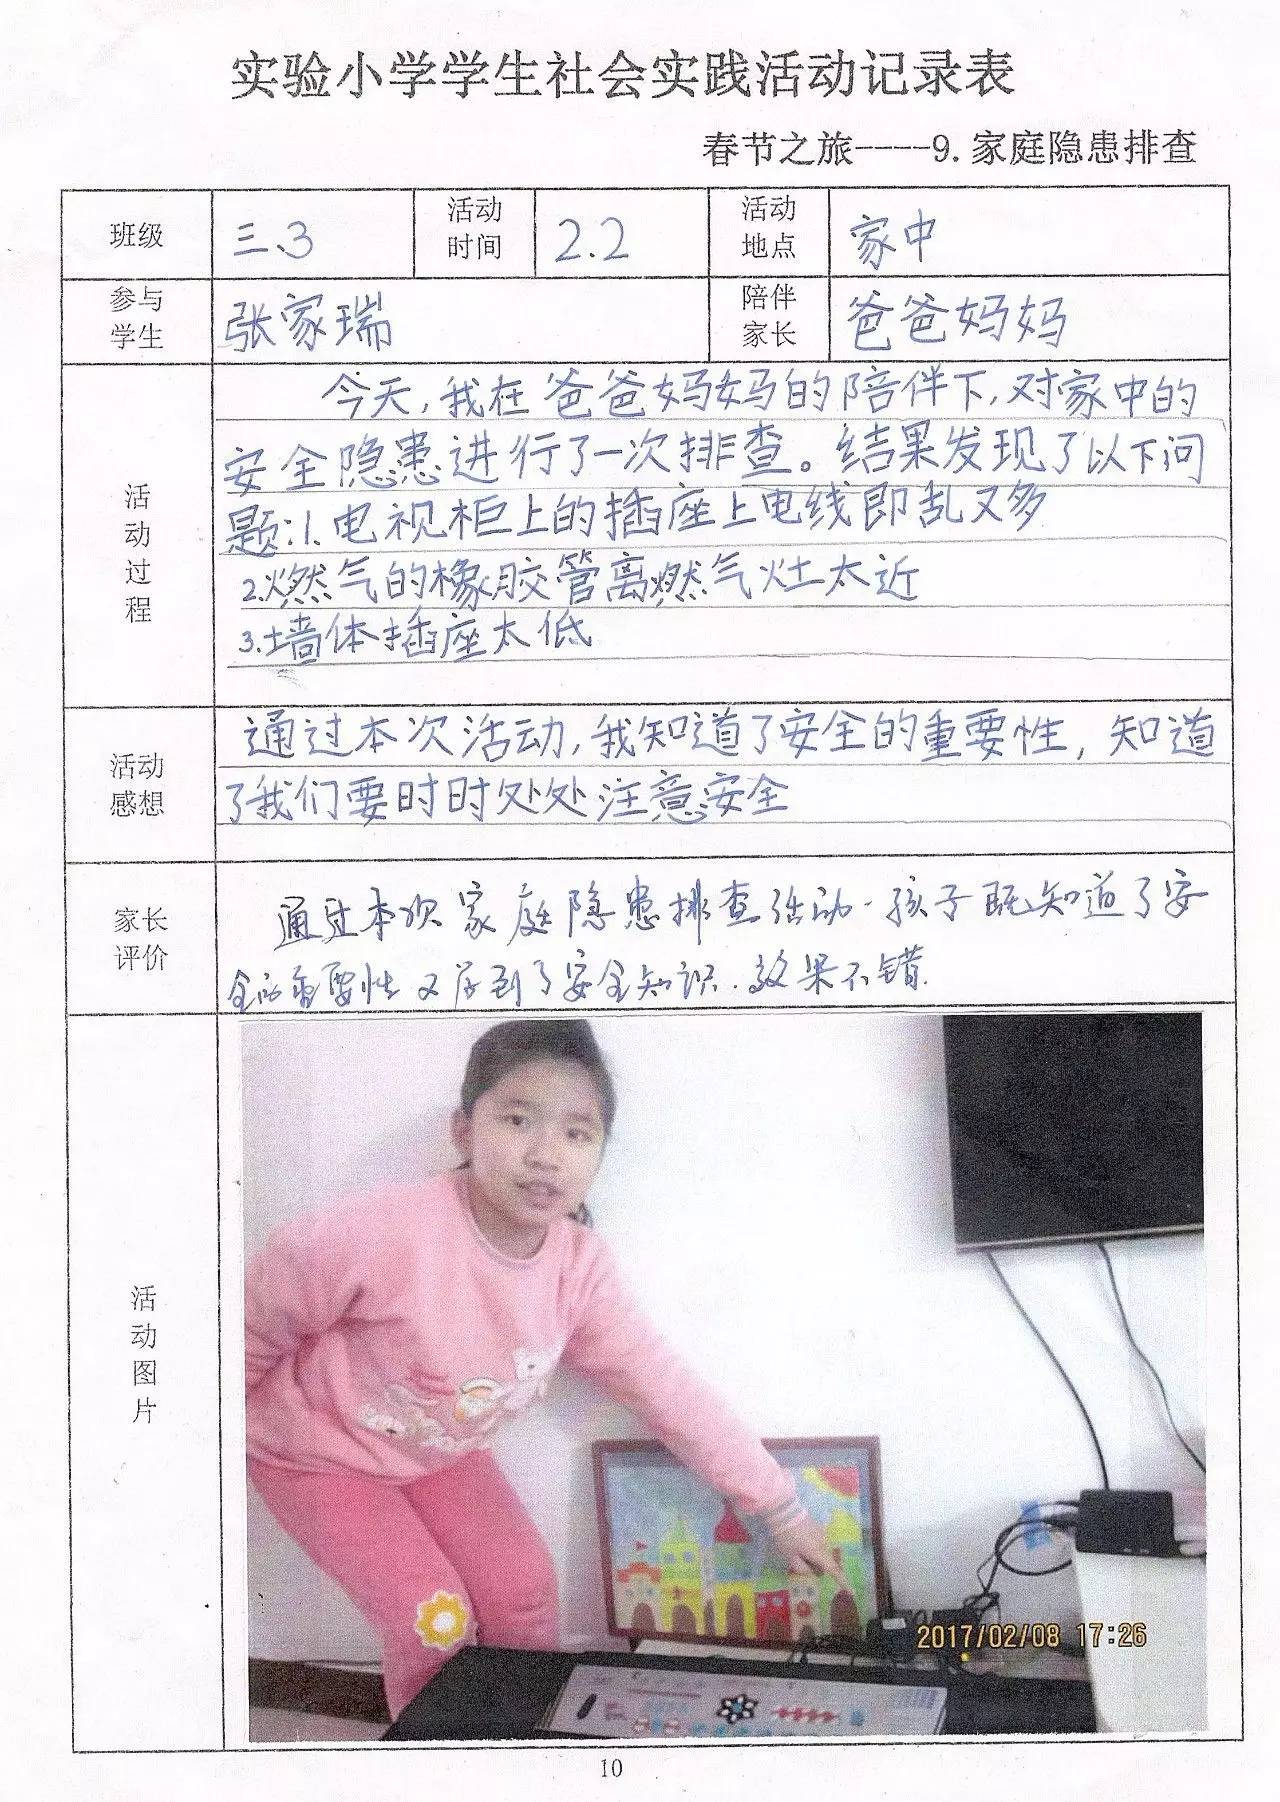 实验小学学生社会实践活动记录表
春节之旅----9.家庭隐患排查
班级 三、3 活动时间 2.2 活动地点 家中
参与学生 张家瑞 陪伴家长 爸爸妈妈
活动过程
今天,我在爸爸妈妈的陪伴下,对家中的
安全隐患进行了一次排查。结果发现了以下问
题:1.电视柜上的插座上电线即乱又多
2.燃气的橡胶管离燃气灶太近
3.墙体插座太低
活动感想
通过本次活动,我知道了安全的重要性,知道
了我们要时时处处注意安全
家长评价
通过本次家庭隐患排查活动.孩子既知道了安
全的重要性又学到了安全知识.效果不错.
活动图片
2017/02/08 17:26
10